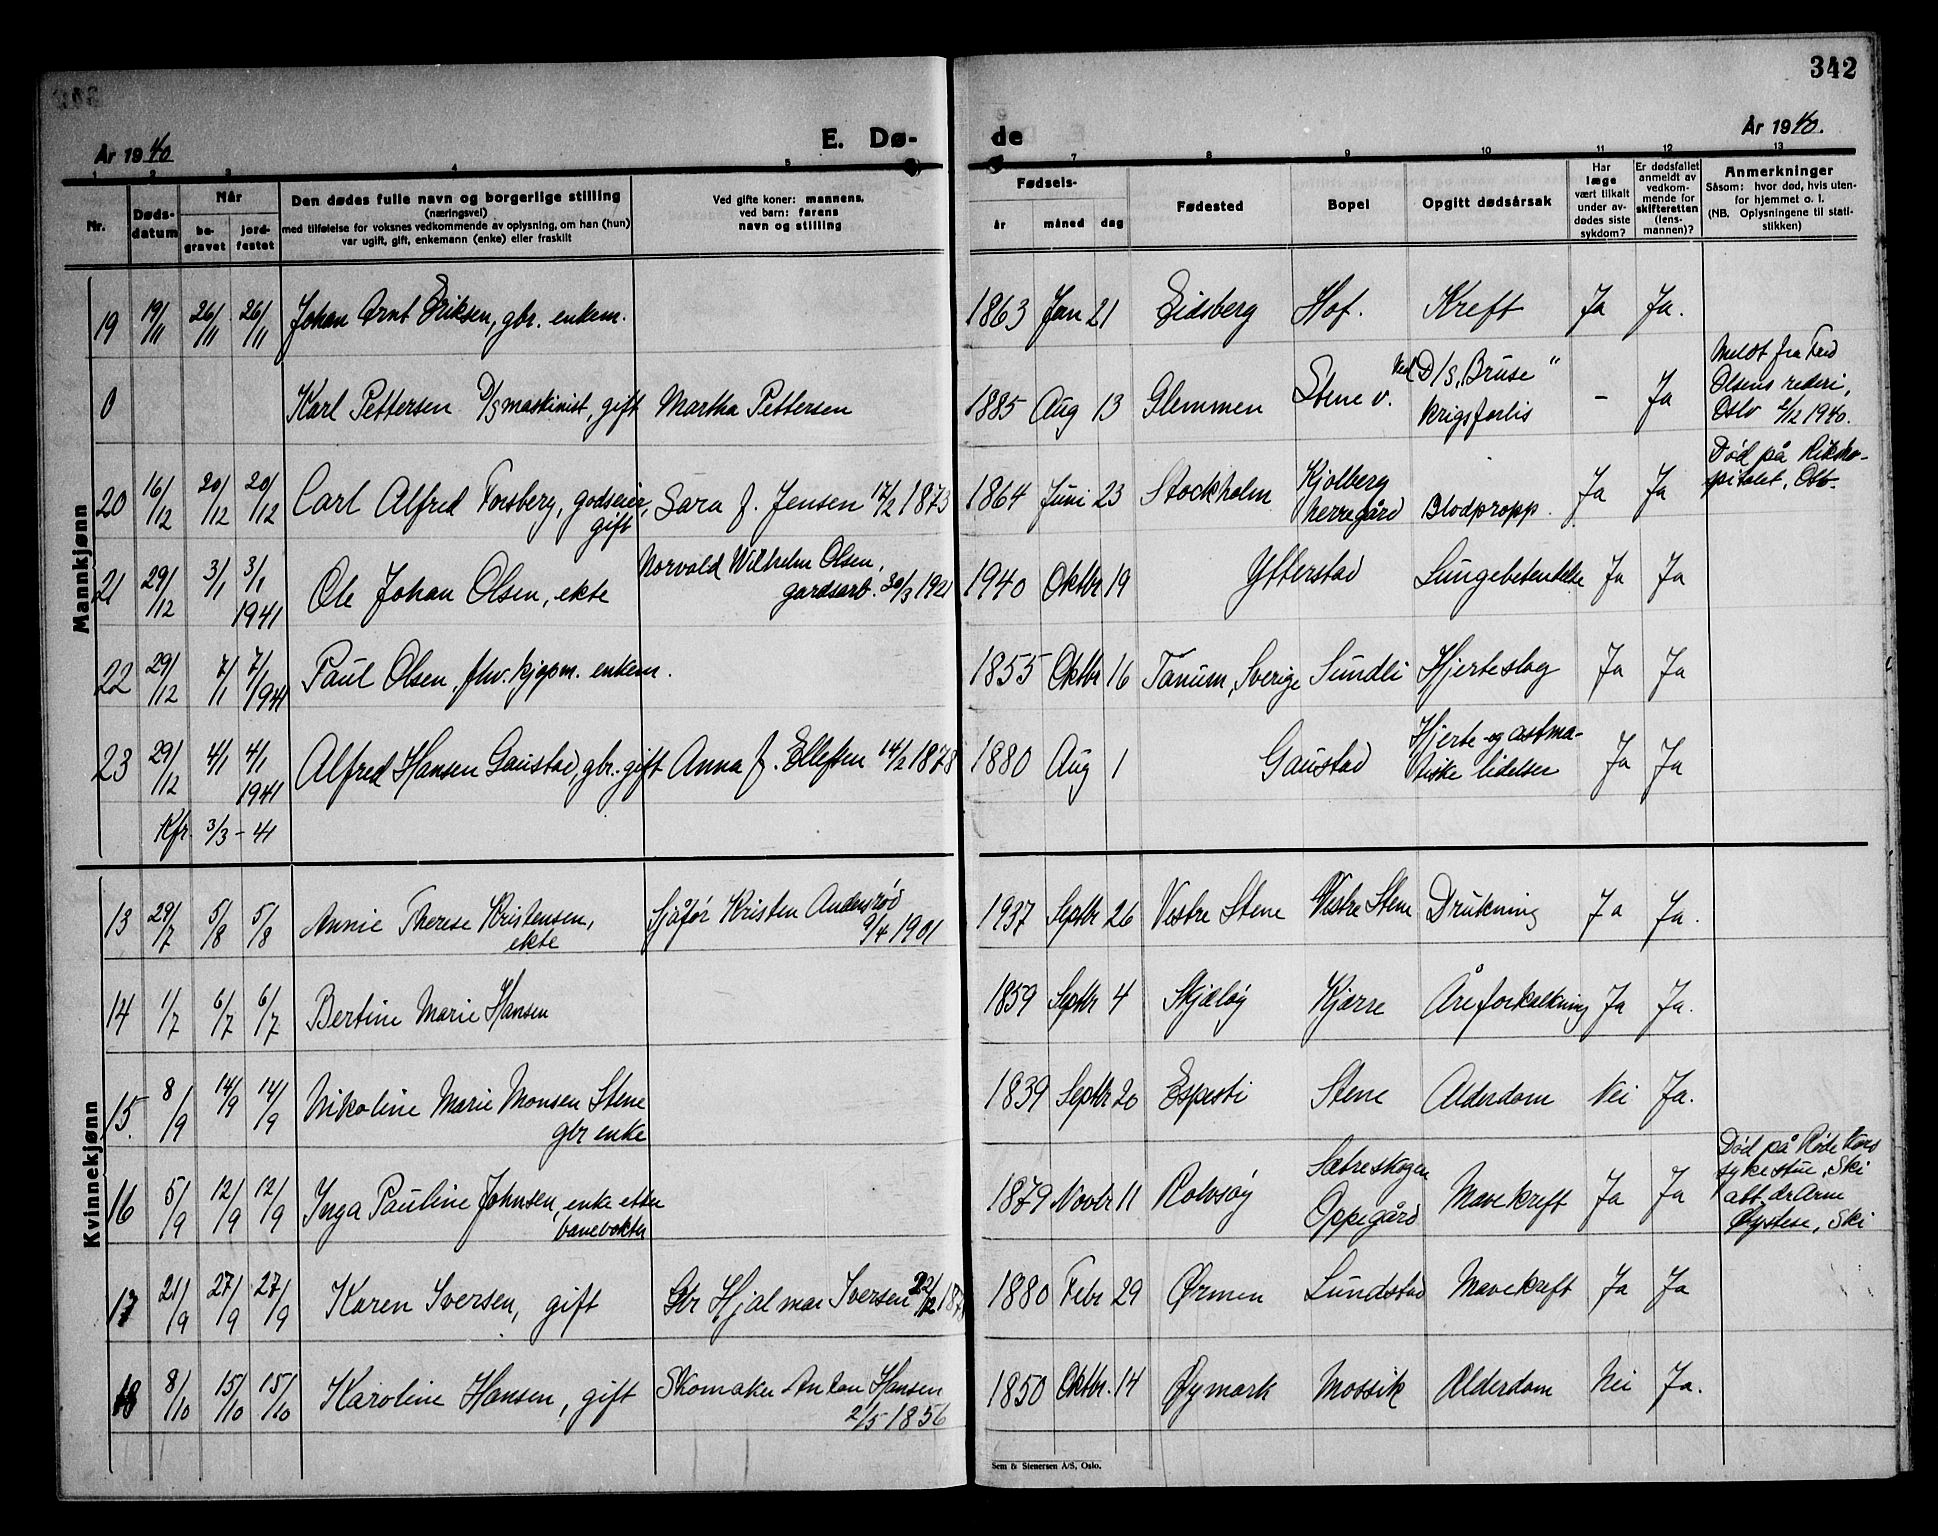 342
År 1940
E. Dø-
de
År 1940.
1 2 3 4 5 7 8 9 10 11 12 13
Nr.
Døds-
datum
Når
be-
gravet
jord-
festet
Den dødes fulle navn og borgerlige stilling
(næringsvei)
med tilføielse for voksnes vedkommende av oplysning, om han (hun)
var ugift, gift, enkemann (enke) eller fraskilt
Ved gifte koner: mannens,
ved barn: farens
navn og stilling
Fødsels-
år måned dag
Fødested
Bopel
Opgitt dødsårsak
Har
læge
vært tilkalt
under av-
dødes siste
sykdom?
Er dødsfallet
anmeldt av
vedkom-
mende for
skifteretten
(lens-
mannen)?
Anmerkninger
Såsom: hvor død, hvis uten-
for hjemmet o. l.
(NB. Oplysningene til stati-
stikken)
Mannkjønn
19 19/11 26/11 26/11 Johan Arnt Eriksen, gbr. enkem. 1863 Jan 21 Eidsberg Hof. Kreft Ja Ja.
0 Karl Pettersen D/S maskinist, gift Martha Pettersen 1885 Aug 13 Glemmen Stene v. Ved D/S „Bruse“
krigsforlis - Ja Meldt fra Fred
Olsens rederi,
Oslo 2/12 1940.
20 16/12 20/12 20/12 Carl Alfred Forsberg, godseier,
gift Sara J. Jensen 17/2 1873 1864 Juni 23 Stockholm Kjølberg
herregård Blodpropp. Ja Ja Død på Riksho-
spitalet, Oslo.
21 29/12 3/1 3/1
1941 Ole Johan Olsen, ekte Norvald Wilhelm Olsen,
gardsarb. 30/3 1921 1940 Oktbr 19 Ytterstad Lungebetendelse Ja Ja
22 29/12 7/1 7/1
1941 Paul Olsen, fhv. kjøpm. enkem. 1855 Oktbr 16 Tanum, Sverige Sundli Hjerteslag Ja Ja
23 29/12 4/1 4/1
1941 Alfred Hansen Gaustad, gbr. gift Anna J. Ellefsen 14/2 1878 1880 Aug 1 Gaustad Hjerte- og astma-
tiske lidelser Ja Ja
Kfr. 3/3 - 41
Kvinnekjønn
13 29/7 5/8 5/8 Annie Therese Kristensen,
ekte Sjåfør Kristen Andersrød
9/4 1901 1937 Septbr 26 Vestre Stene Vestre Stene Drukning Ja Ja.
14 1/7 6/7 6/7 Bertine Marie Hansen 1859 Septbr 4 Skjæløy Kjærre Åreforkalkning Ja Ja.
15. 8/9 14/9 14/9 Nikoline Marie Monsen Stene
gbr enke 1839 Septbr 20 Espesti Stene Alderdom Nei Ja.
16 5/9 12/9 12/9 Inga Pauline Johnsen, enke etter
banevokter 1879 Novbr 11 Rolvsøy Sætreskogen
Oppegård Mavekreft Ja Ja Død på Røde Kors
sykestue, Ski
att. dr Arne
Øystese, Ski
17 21/9 27/9 27/9 Karen Iversen, gift Gbr Hjalmar Iversen 22/12 1880 Febr 29 Ørmen Lundstad Mavekreft Ja Ja
18 8/10 15/10 15/10 Karoline Hansen, gift Skomaker Anton Hansen
2/5 1856 1850 Oktbr. 14 Øymark Mossik Alderdom Nei Ja.
Sem & Stenersen A/S, Oslo.